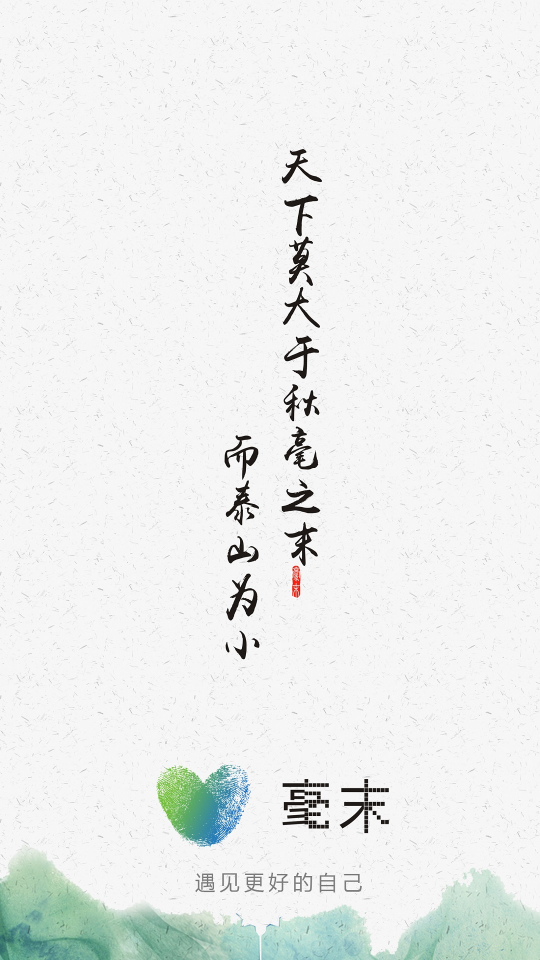 天下莫大于秋毫之末
毫末
而泰山为小
毫末
遇见更好的自己